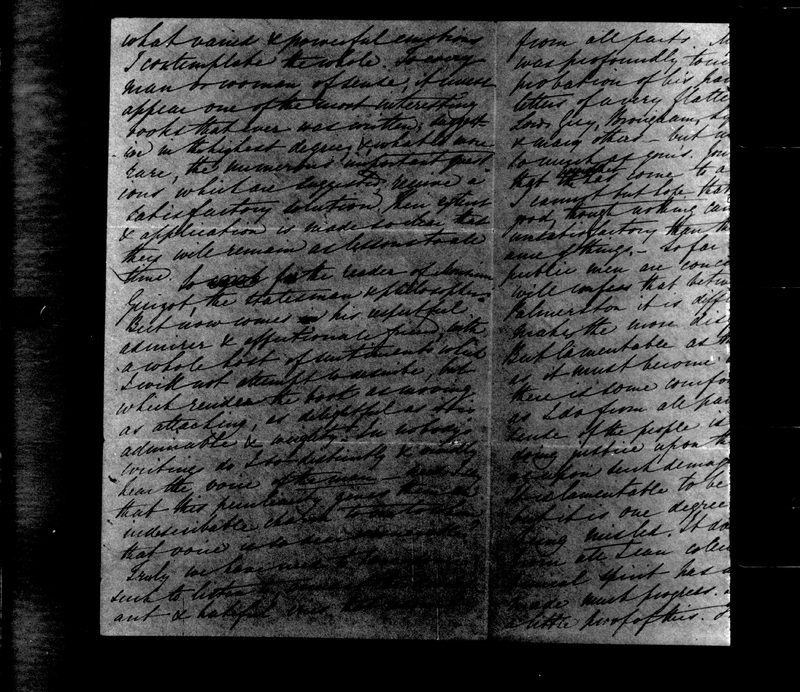 what varied & powerful emotions
I contemplate the whole. To every
man or woman of sense, it must
appear one of the most interesting
books that ever was written, suggest-
ive in the highest degree, & what is more
rare, the numerous important quest
ions which are suggested, receive a
satisfactory solution their extent
& application is made so clear that
they will remain as lessons to all
time. So for the reader of Monsieur
Guizot, the statesman & philosopher.
But now comes his respectful
admirer & affectionate friend, with
a whole host of sentiments which
I will not attempt to describe but
which render the book as moving
as attaching, as delightful as it is
admirable & weighty. In nobody's
writing do I so distinctly & vividly
hear the voice of the man
that this peculiarity gives them an
indescribable charm to
that voice is so dear
Truly we have need
such to listen to
ant & hateful
from all parts. M
was profoundly touc
probation of his par
letters of a very flatte
Lord Grey, Brougham,
& many others – but
so much as yours.
that has come to a
I cannot but hope that
good, though nothing can
unsatisfactory than th
ance of things. – So far
public men are conce
will confess that betw
Palmerston it is diffi
makes the more dis
But lamentable as
as it must become
there is some comfor
as I do from all par
sense of the people is
doing justice upon th
as upon such demag
It is lamentable to be
but it is one degree
being misled. It do
from all I can collec
spirit has
made much progress.
a little proof of this.